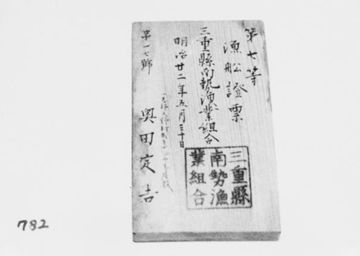 第七等
漁船證票
三重縣南勢漁業組合
明治廿二年五月三十日
第一七號
奥田定吉
三重縣
南勢漁
業組合
782